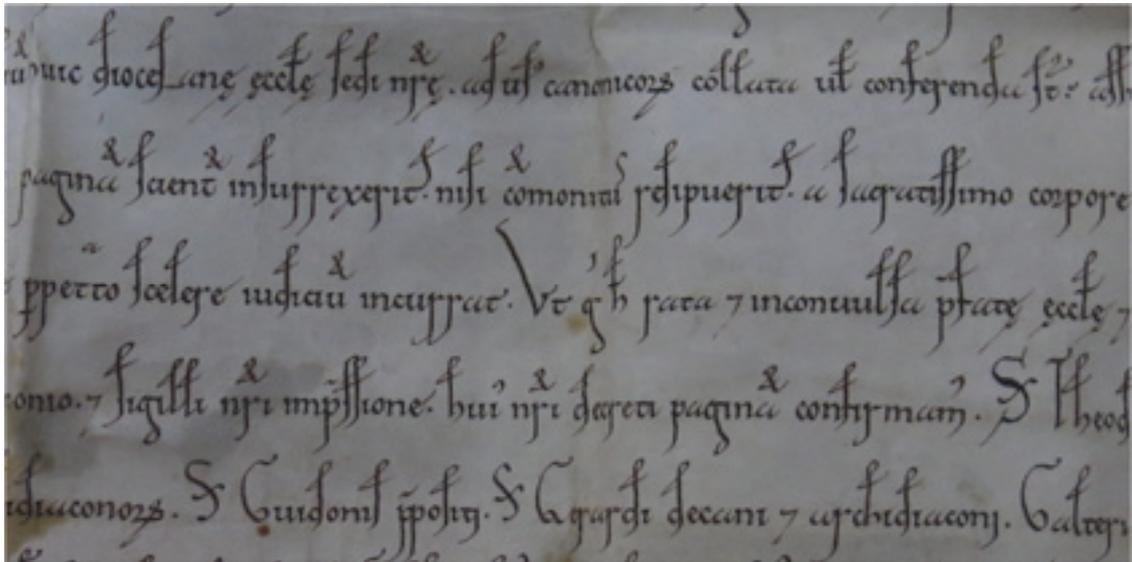 huic diocesanę ęcclę sedi nr̃ę. ad us᾽ canonicoꝝ collata ul̃ conferenda st̃:
pagina͞ scient̃ insurrexerit. nisi co͞moniti resipuerit. a sacratissimo corpore
ꝑpet͞to scelere iudiciu͞ incurrat. Vt g̊ h̾ rata ⁊ inconuulsa p̃fatę ęcclę ⁊
⁊ sigilli nr̃i imp̃ssione. hui᾽ nr̃i decreti pagina͞ confirmam᾽. S Theod
diaconoꝝ. S Guidonis p̃positi. S Gerardi decani ⁊ archidiaconi. Galteri